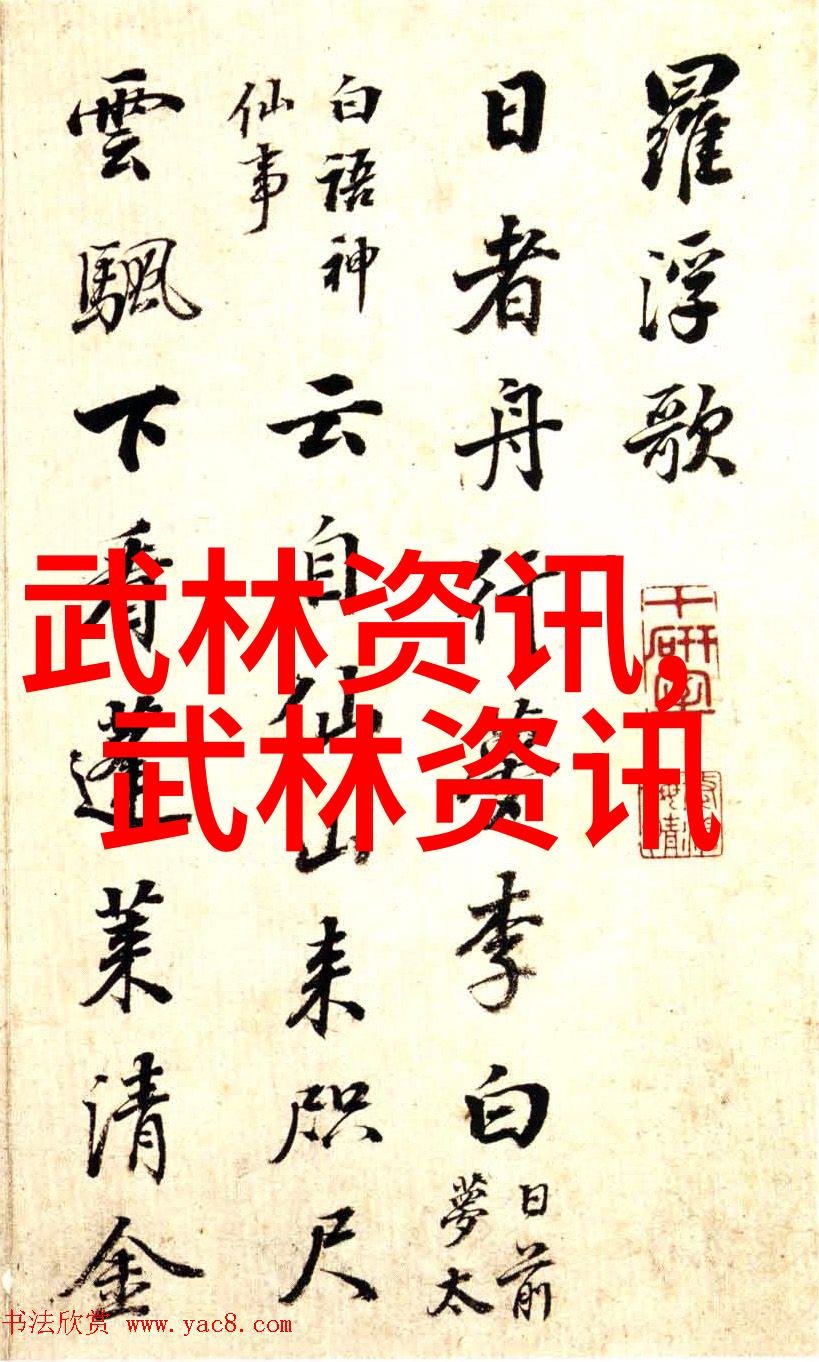 羅浮歌
日者舟行夢李白
日前
夢太
白語神
仙事
云自仙山来咫尺
雲颿下看蓬莱清金
武林资讯,
武林资讯
书法欣赏 www.yac8.com